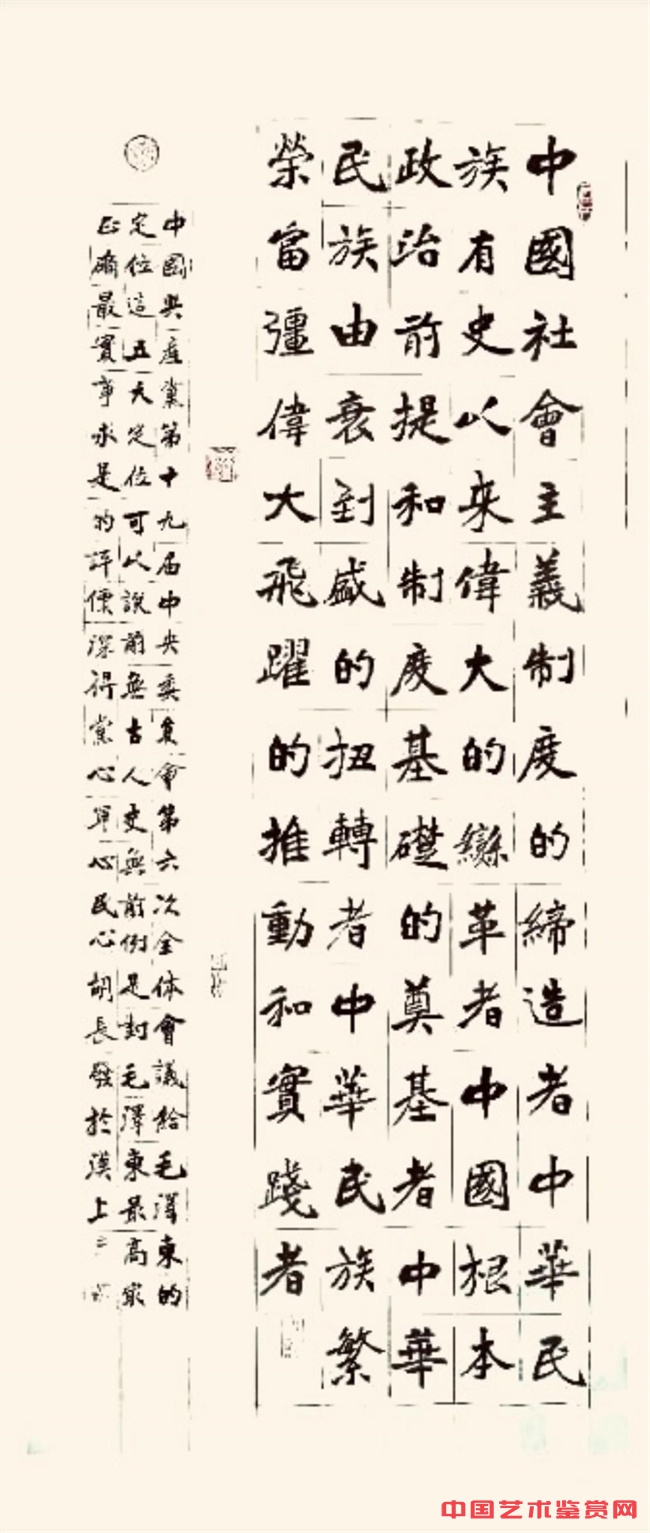 中國社會主義制度的締造者中華民
族有史以來偉大的變革者中國根本
政治前提和制度基礎的奠基者中華
民族由衰到盛的扭轉者中華民族繁
榮富彊偉大飛躍的推動和實踐者
中國共產黨第十九届中央委員會第六次全体會議給毛澤東的
定位這五大定位可以説前無古人史無前例是對毛澤東最高最
正確最實事求是的評價深得黨心軍心民心胡長發於漢上
中国艺术鉴赏网